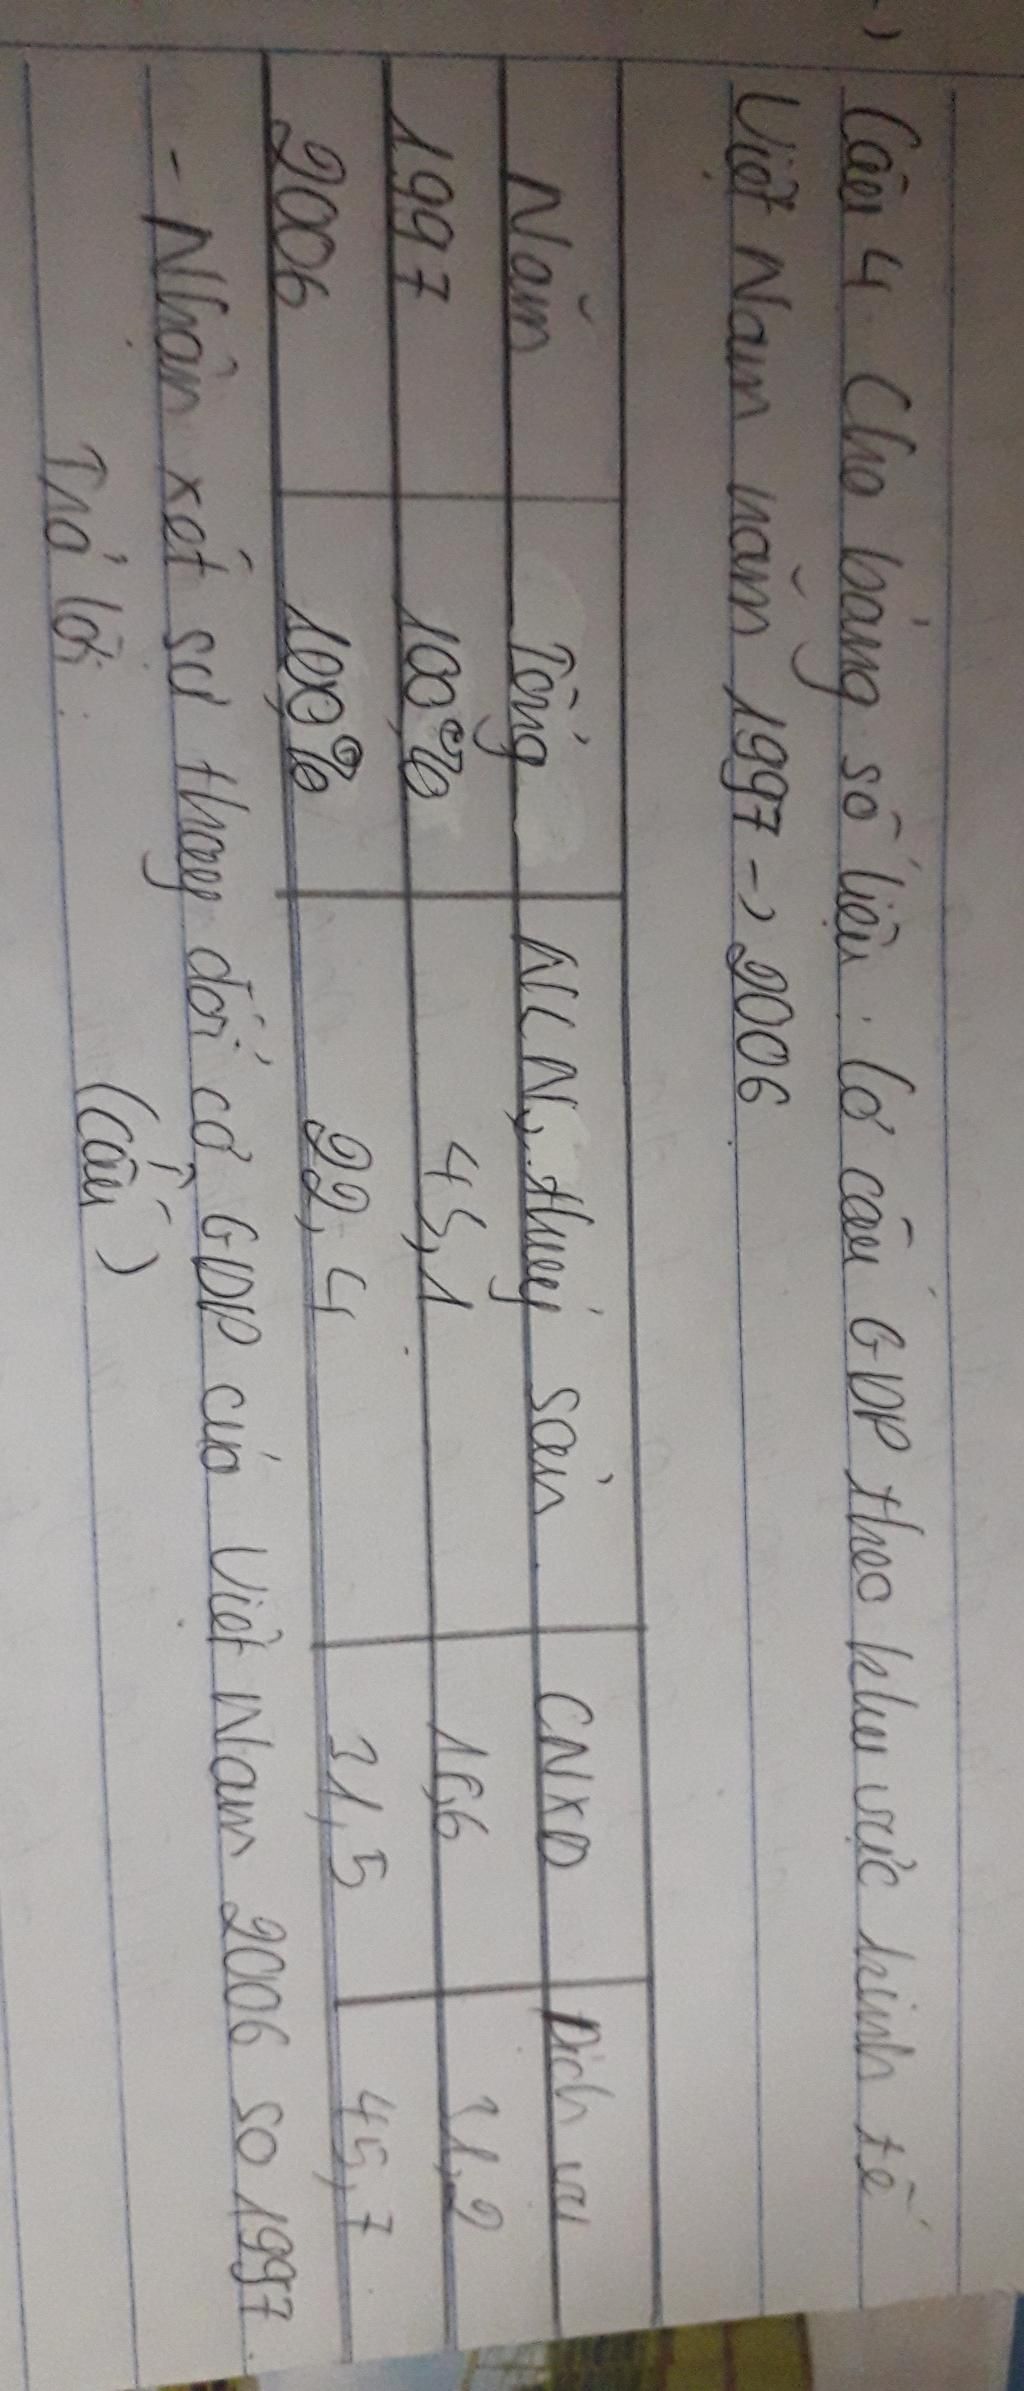 Câu 4. Cho bảng số liệu: Cơ cấu GDP theo khu vực kinh tế
Việt Nam năm 1997 -> 2006
Năm Tổng NLN, thuỷ sản CNXD Dịch vụ
1997 100% 45,1 16,6 31,2
2006 100% 22,4 31,5 45,7
- Nhận xét sự thay đổi cơ GDP của Việt Nam 2006 so 1997.
Trả lời: (cấu)